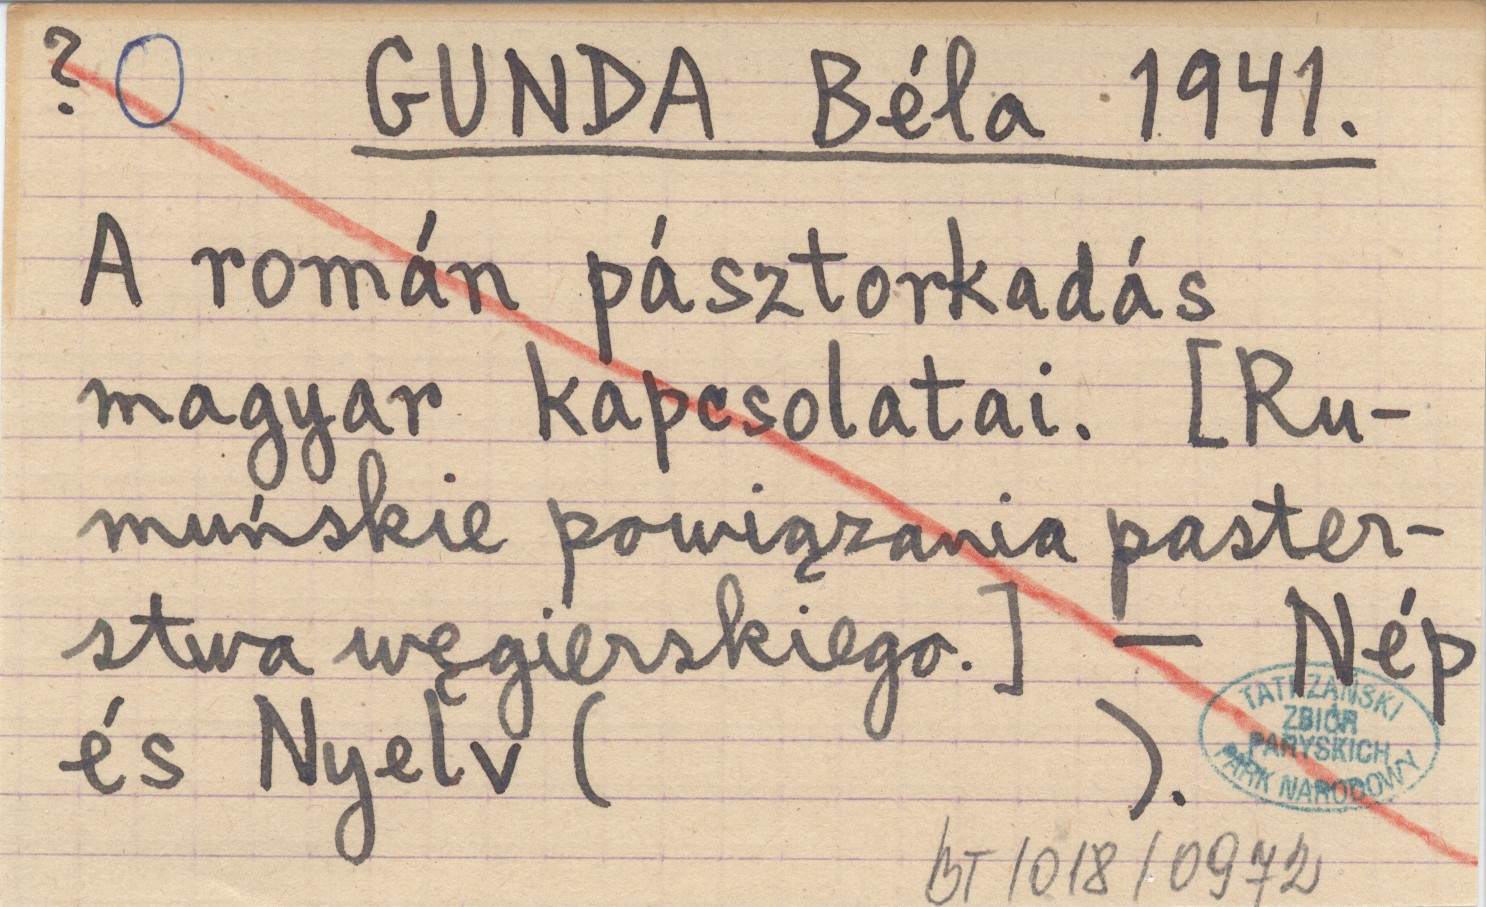 ? O GUNDA Béla 1941.
A román pásztorkadás
magyar kapcsolatai. [Ru-
muńskie powiązania paster-
stwa węgierskiego.] — Nép
és Nyelv ( ).
TATRZAŃSKI
ZBIÓR
PARYSKICH
PARK NARODOWY
BT/018/0972